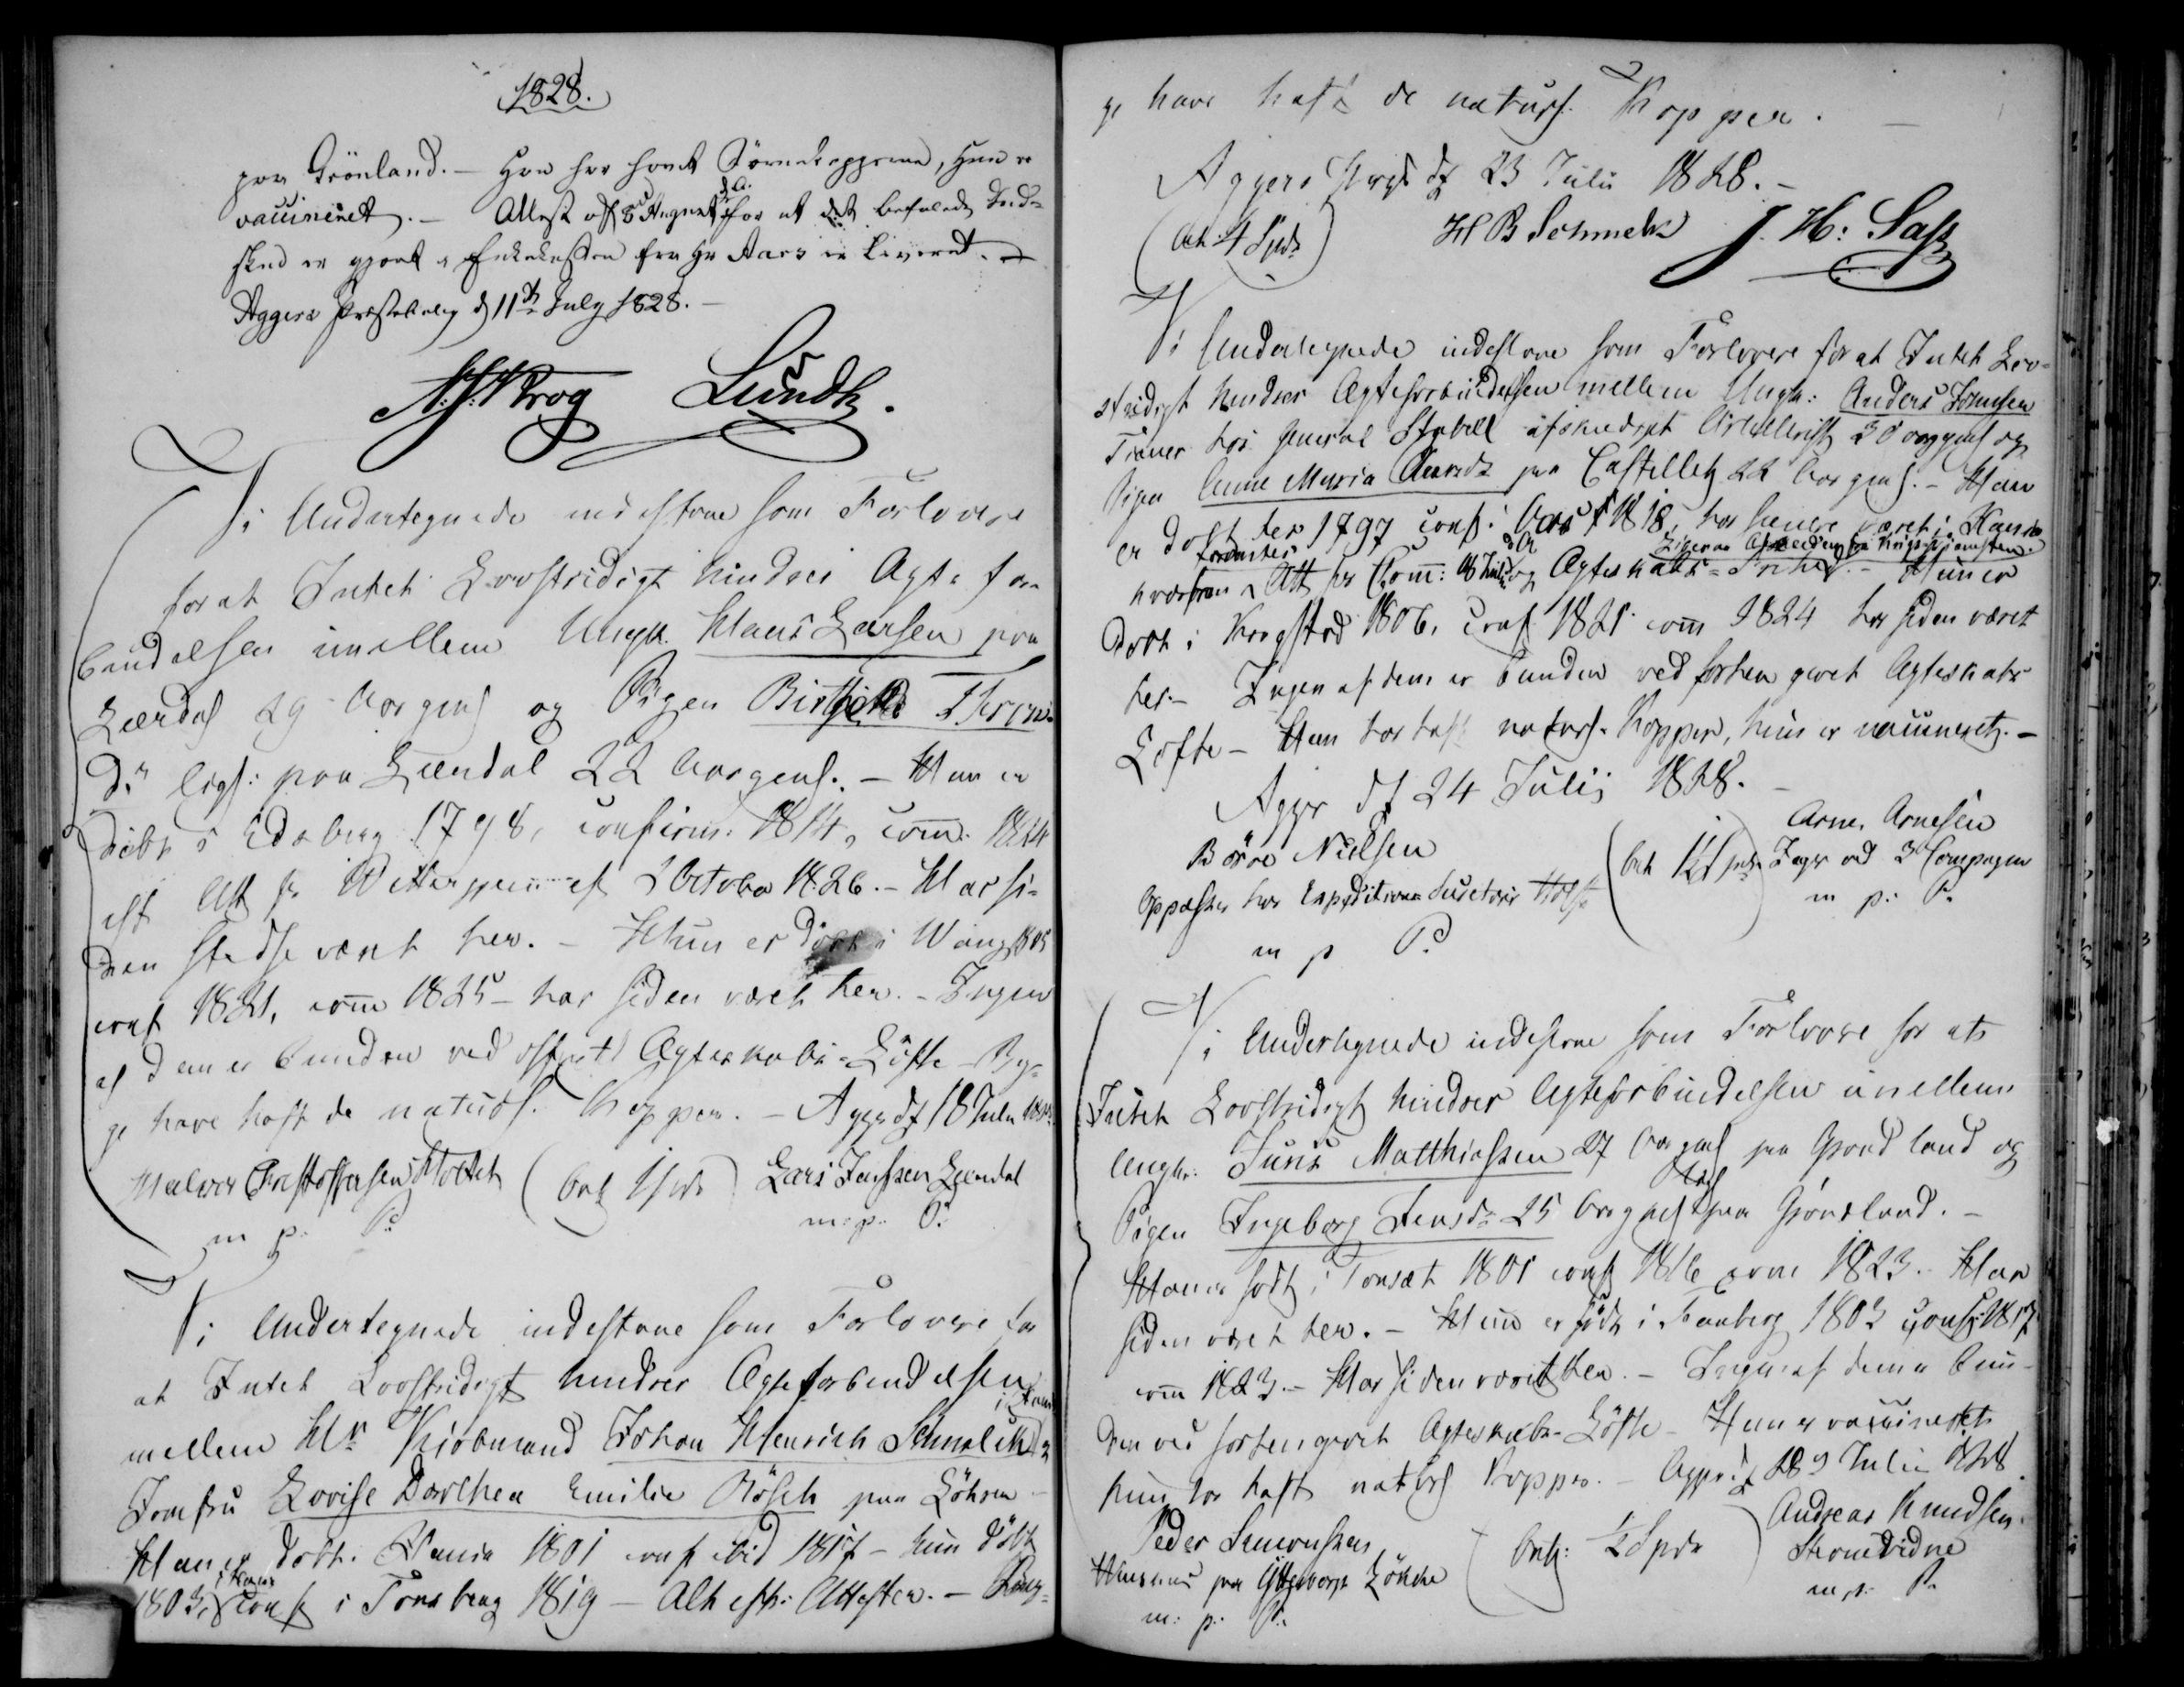 1828.
paa Grönland. – Han har havt Börnekopperne, Hun er
vaccineret. – Attest af 8 August d. A. for at det befalede Ind-
skud er gjort i Enkekassen fra Hr Aars er leveret. –
Aggers Præstebolig d 11te July 1828. –
A. S. Krog Lundh.
Vi Undertegnede indestaae som Forlovere
for at Intet Lovstridigt hindrer Ægtefor-
bindelsen imellem Ungk. Hans Larsen paa
Lærdal 29 Aar gml og Pigen Birthe
Dr ligs: paa Leerdal 22 Aar gml. – Han er
döbt i Edsberg 1798, confirm. 1814, com. 1824
eft Att fr af 2 October 1826. – Har si-
den stedse været her. – Hun er döbt i Wang 1805
conf 1821, com 1825 – har siden været her. – Ingen
af dem er bunden ved offentl Ægteskabs-Löfte – Beg-
ge have haft de naturl. Kopper. – Agger d 18 Julii 1828
Halvor Christophersen (bet 1 spd) Lars Jenssen Leerdal
m p. P. m. p. P.
Vi Undertegnede indestaae som Forlovere for
at Intet Lovstridigt hindrer Ægteforbindelsen
mellem Hr Kiöbmand Johan Henrich Schmelck
Jomfru Lovise Dorthea Emilie Rösch paa Lökken –
Han er döbt i Xania 1801 conf ibid 1817 – hun döbt
1803, conf i Tönsberg 1819 – Alt efter Attester. – Beg-
ge have haft de naturl. Kopper. –
Aggers Prgd d 23 Julii 1828. –
(bet: 4 Spd) H B Schmelck J. H: Sass
Vi Undertegnede indestaae som Forlovere for at Intet Lov-
stridigt hindrer Ægteforbindelsen mellem Ungk: Anders Johnsen
Tiener hos General Stabell afskediget Artillerist 30 aar gml og
Pigen Anne Maria paa Castellet 22 Aar gml. – Han
er döbt her 1797 conf: 1818, har senere været i
hvorfra Att for Com: 18 Julii d A og Ægteskabs-Frihed. – Hun er
ligesaa Afskeden fra Krigstjenesten.
döbt i Krogstad 1806, conf 1821 com 1824 har siden været
her. – Ingen af dem er bunden ved forhen givet Ægteskabs
Löfte – Han har haft naturl. Kopper, hun er vaccineret. –
Agger d 24 Julij 1828. –
Börre Nielsen (bet 1 spd) Arne Arnesen
Oppasser hos Expeditions Secretair Holst Jæger ved 3 Compagnie
m p P. m p. P.
Vi Undertegnede indestaae som Forlovere for at
Intet Lovstridigt hindrer Ægteforbindelsen imellem
Ungk: Juns Matthiassen 27 Aar gml paa Grönland og
Pigen Ingeborg Jensdr 25 Aar gml ligs paa Grönland. –
Han er födt i Tonset 1801 conf 1816 com 1823. Har
siden været her. – Hun er födt i Faaberg 1803 conf: 1817
com 1823. – Har siden været her. – Ingen af dem er bun-
den ved forhen givet Ægteskabs-Löfte – Han er vaccineret
hun har haft naturl Kopper. – Agger d 28 Julii 1828.
Peder Simensen (bet: ½ Spd) Andreas Knudsen
Huusmand paa Lökke
m: p: P. m. p. P.